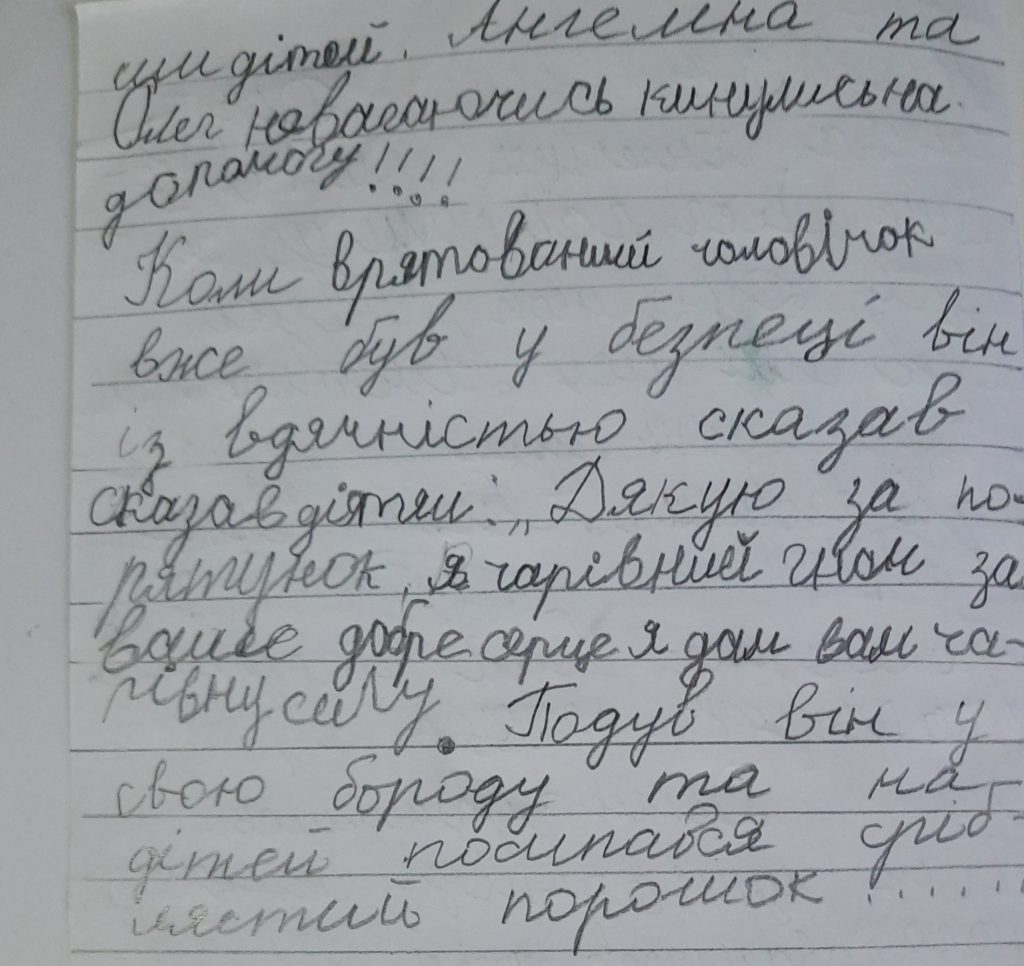 ши дітей. Ангеліна та
Олег невагаючись кинулись на
допомогу!!!!
Коли врятований чоловічок
вже був у безпеці він
із вдячністью сказав
сказав дітям: „Дякую за по-
рятунок, я чарівний гном за
ваше добре серце я дам вам ча-
рівну силу. Подув він у
свою бороду та на
дітей посипався сріб-
лястий порошок.....